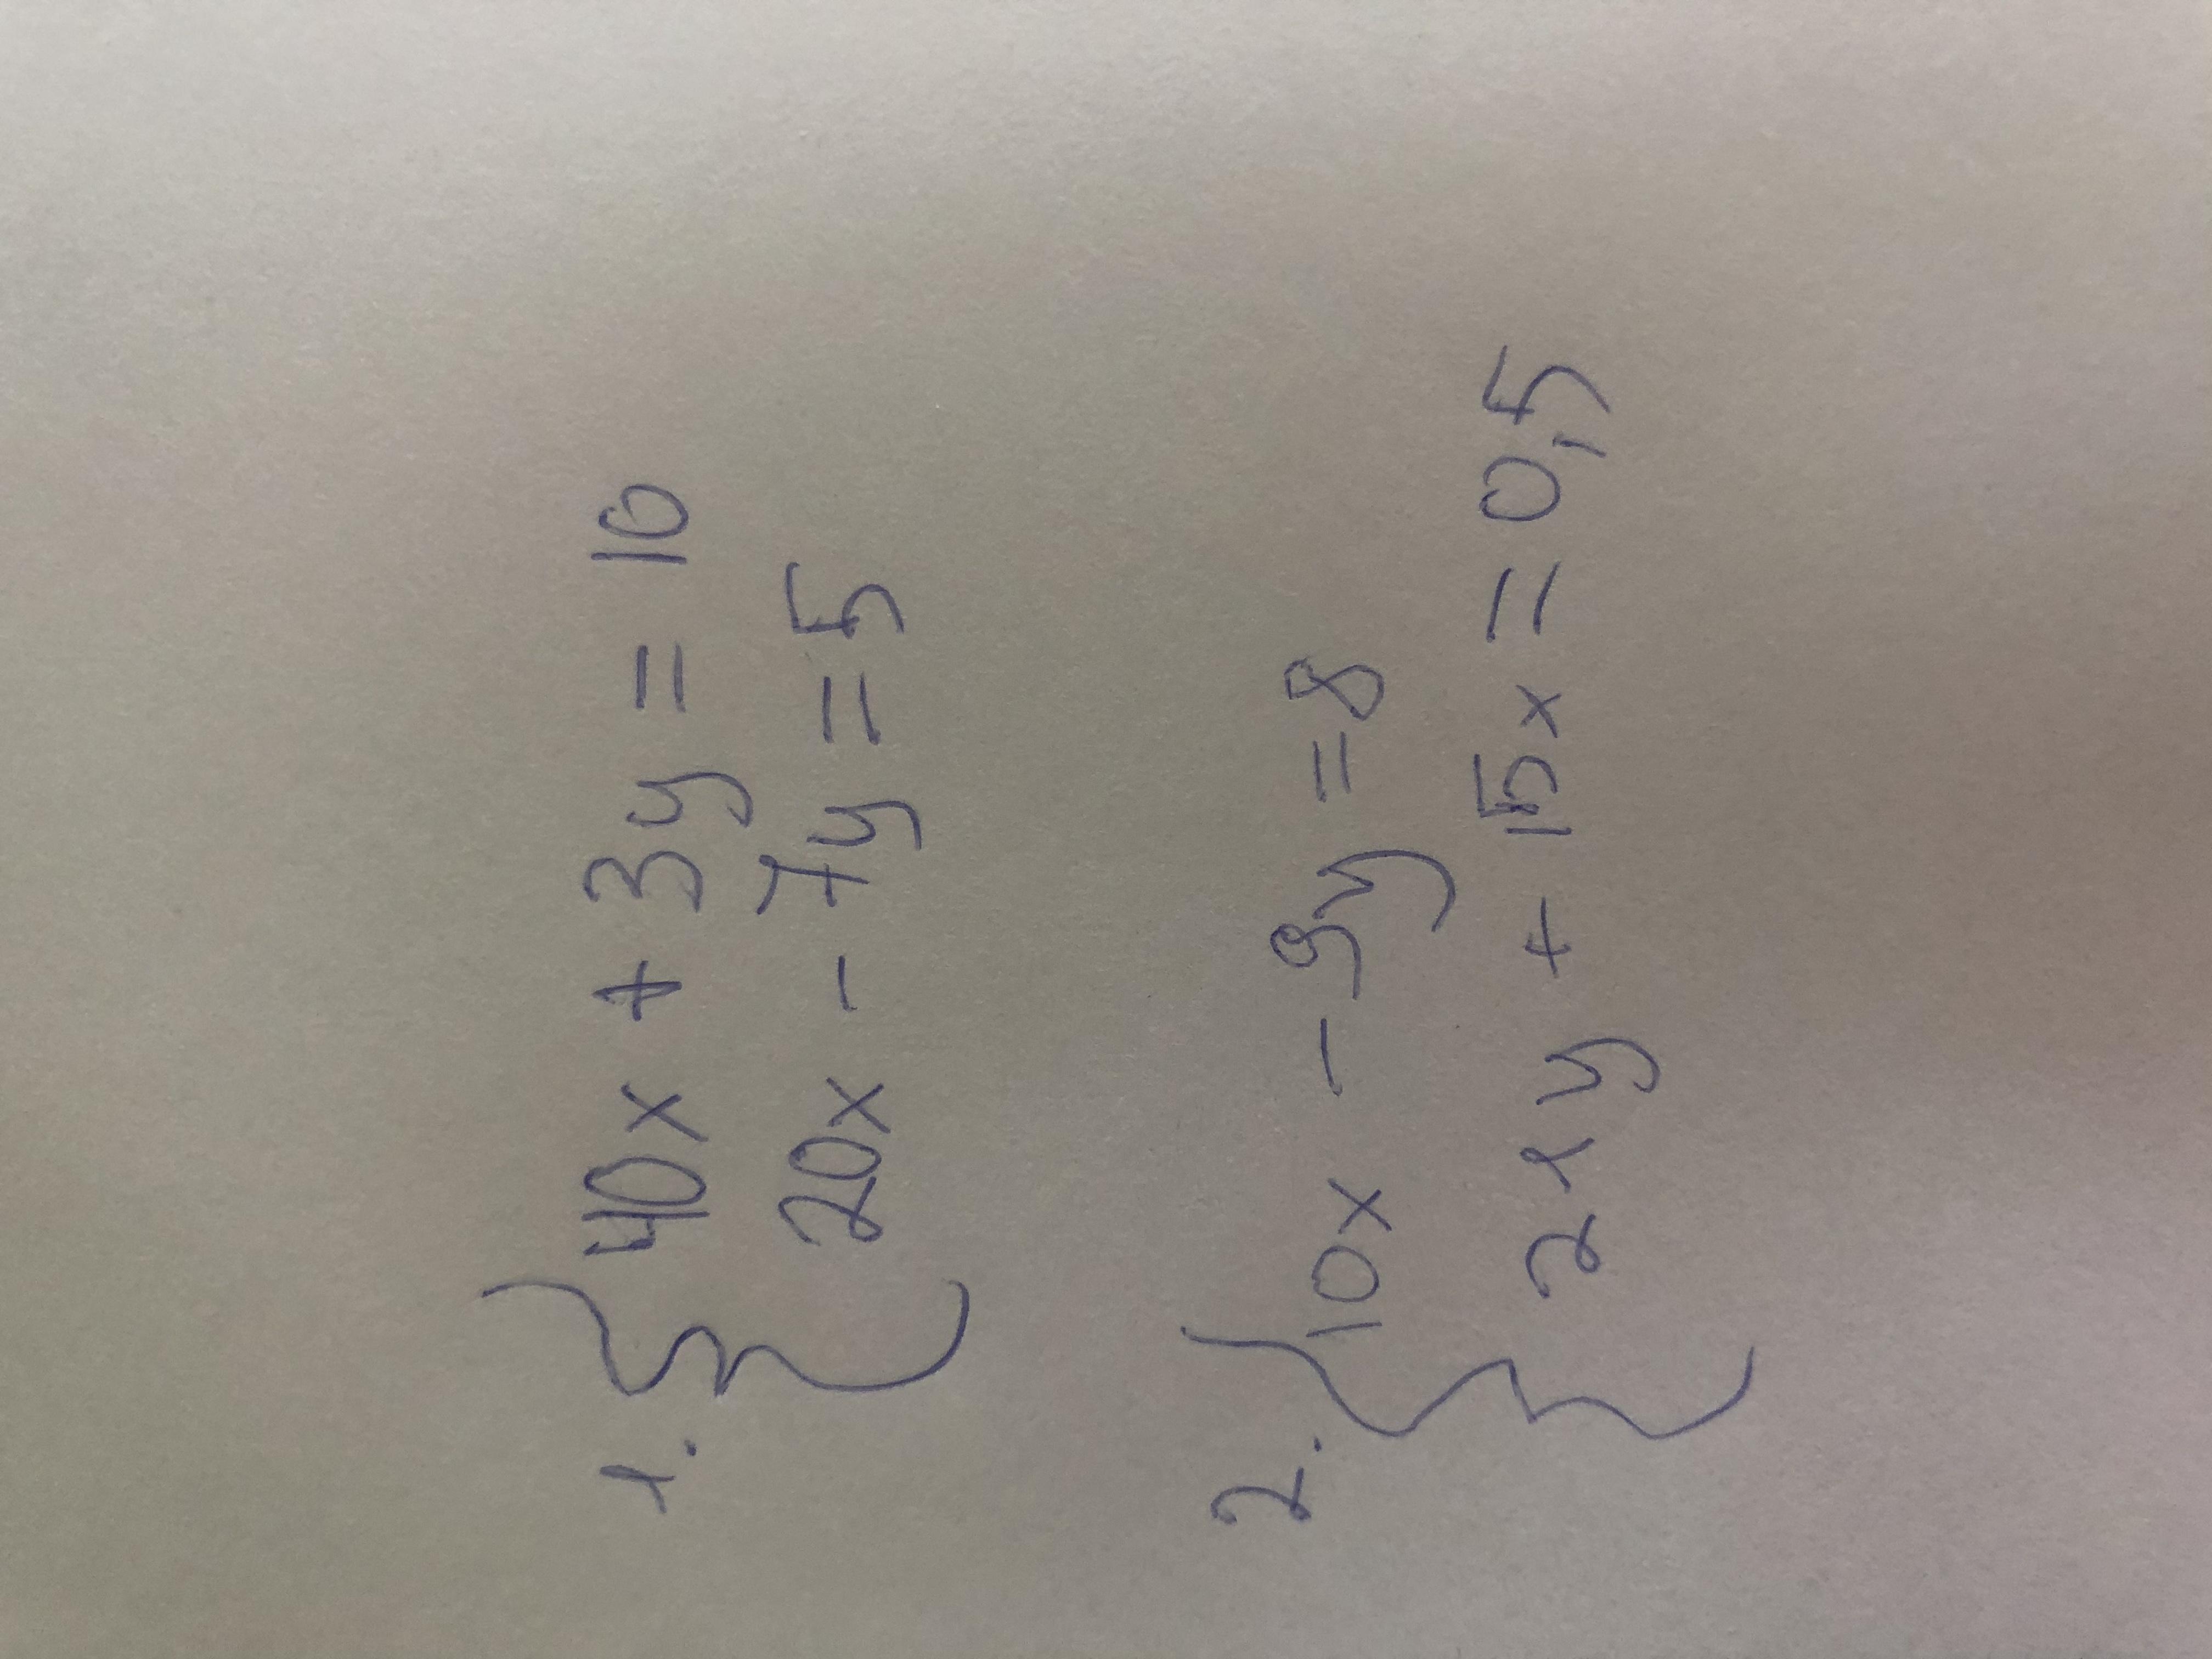 1. { 40x + 3y = 10
20x - 7y = 5
2. { 10x - 9y = 8
21y + 15x = 0,5